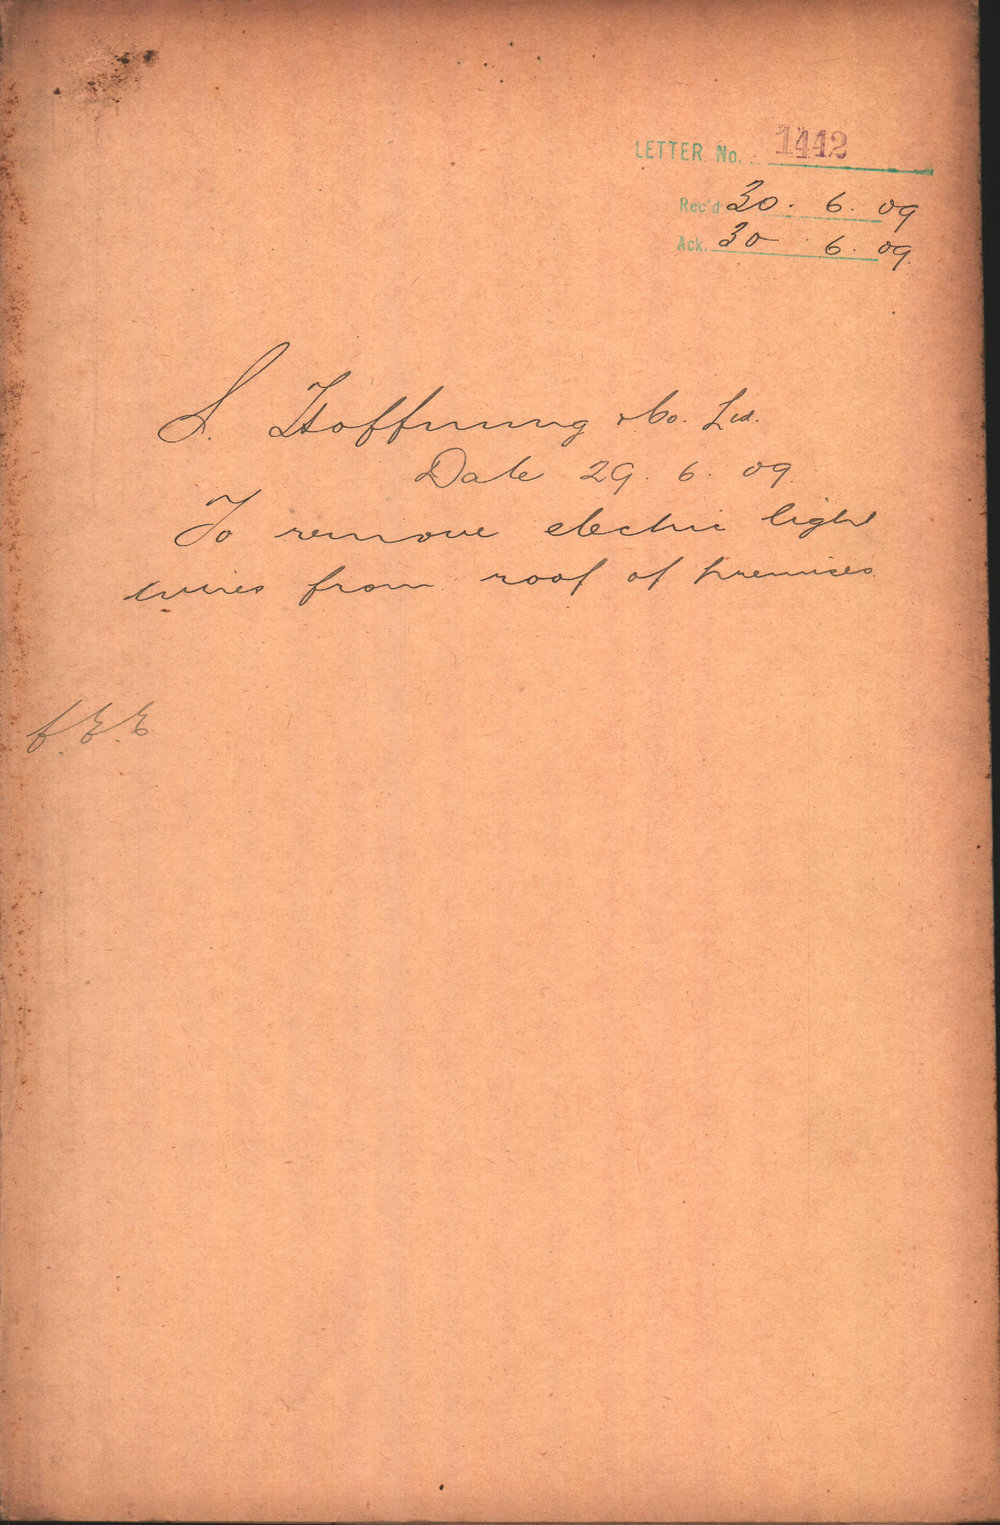 LETTER No. 1442
Rec'd 30. 6. 09
Ack. 30. 6. 09.
S. Hoffnung & Co. Ltd.
Date 29. 6. 09.
To remove electric light
wires from roof of premises